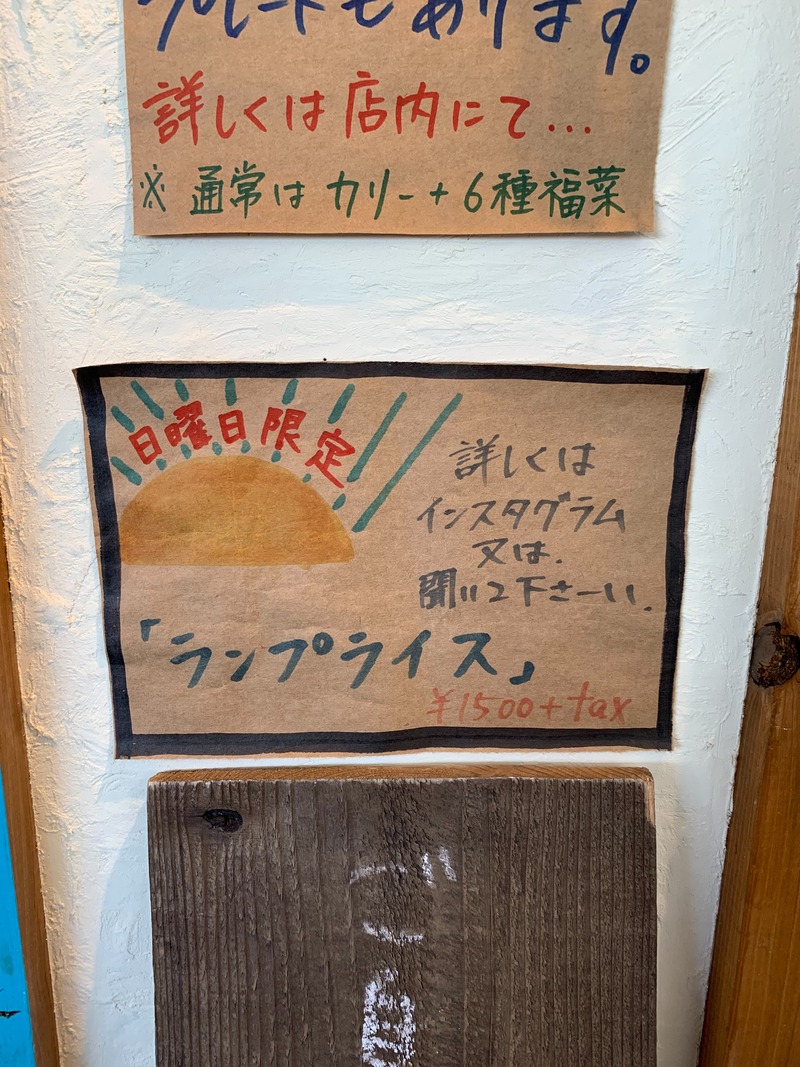 プレートもあります。
詳しくは店内にて...
※通常はカリー+6種福菜
日曜日限定
詳しくは
インスタグラム
又は.
聞いて下さーい.
「ランプライス」
¥1500+tax